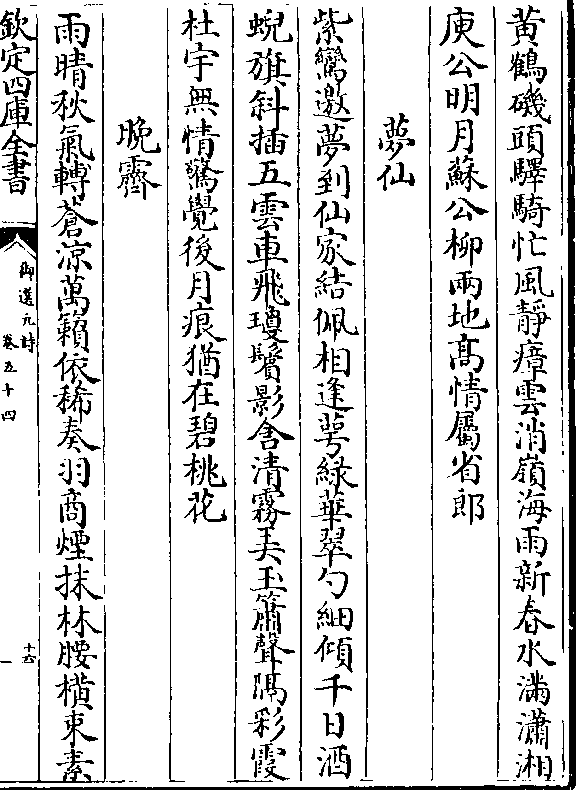 黄鶴磯頭驛騎忙風靜瘴雲消嶺海雨新春水滿瀟湘
庾公明月蘇公柳兩地髙情屬省郎
夢仙
紫鸞邀夢到仙家結佩相逢萼緑華翠勺細傾千日酒
蜺旗斜插五雲車飛瓊鬢影含清霧弄玉簫聲隔彩霞
杜宇無情驚覺後月痕猶在碧桃花
晩霽
雨晴秋氣轉蒼涼萬籟依稀奏羽商煙抹林腰横束素
欽定四庫全書
御選元詩
卷五十四
十六